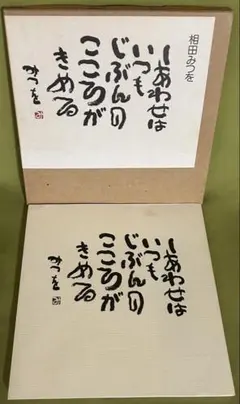 相田みつを
しあわせは
いつも
じぶんの
こころが
きめる
みつを
しあわせは
いつも
じぶんの
こころが
きめる
みつを